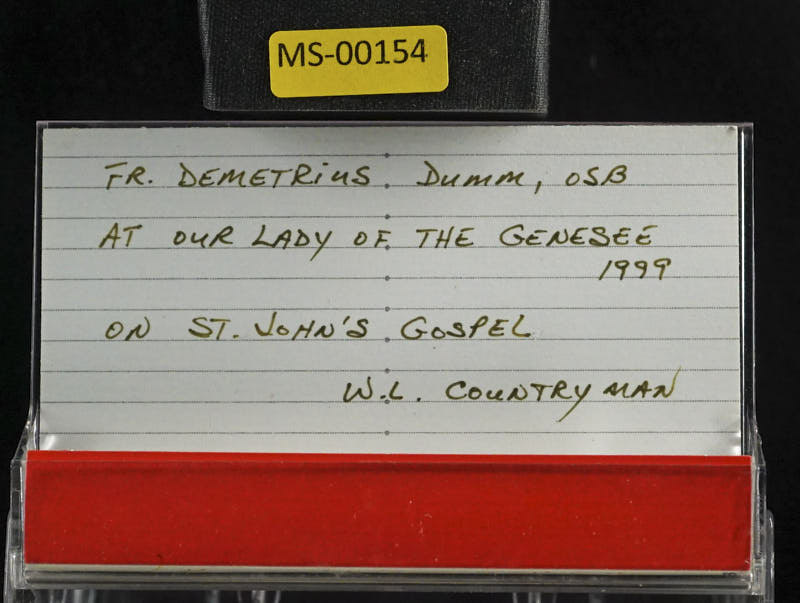 MS-00154
FR. DEMETRIUS DUMM, OSB
AT OUR LADY OF THE GENESEE
1999
ON ST. JOHN'S GOSPEL
W.L. COUNTRYMAN